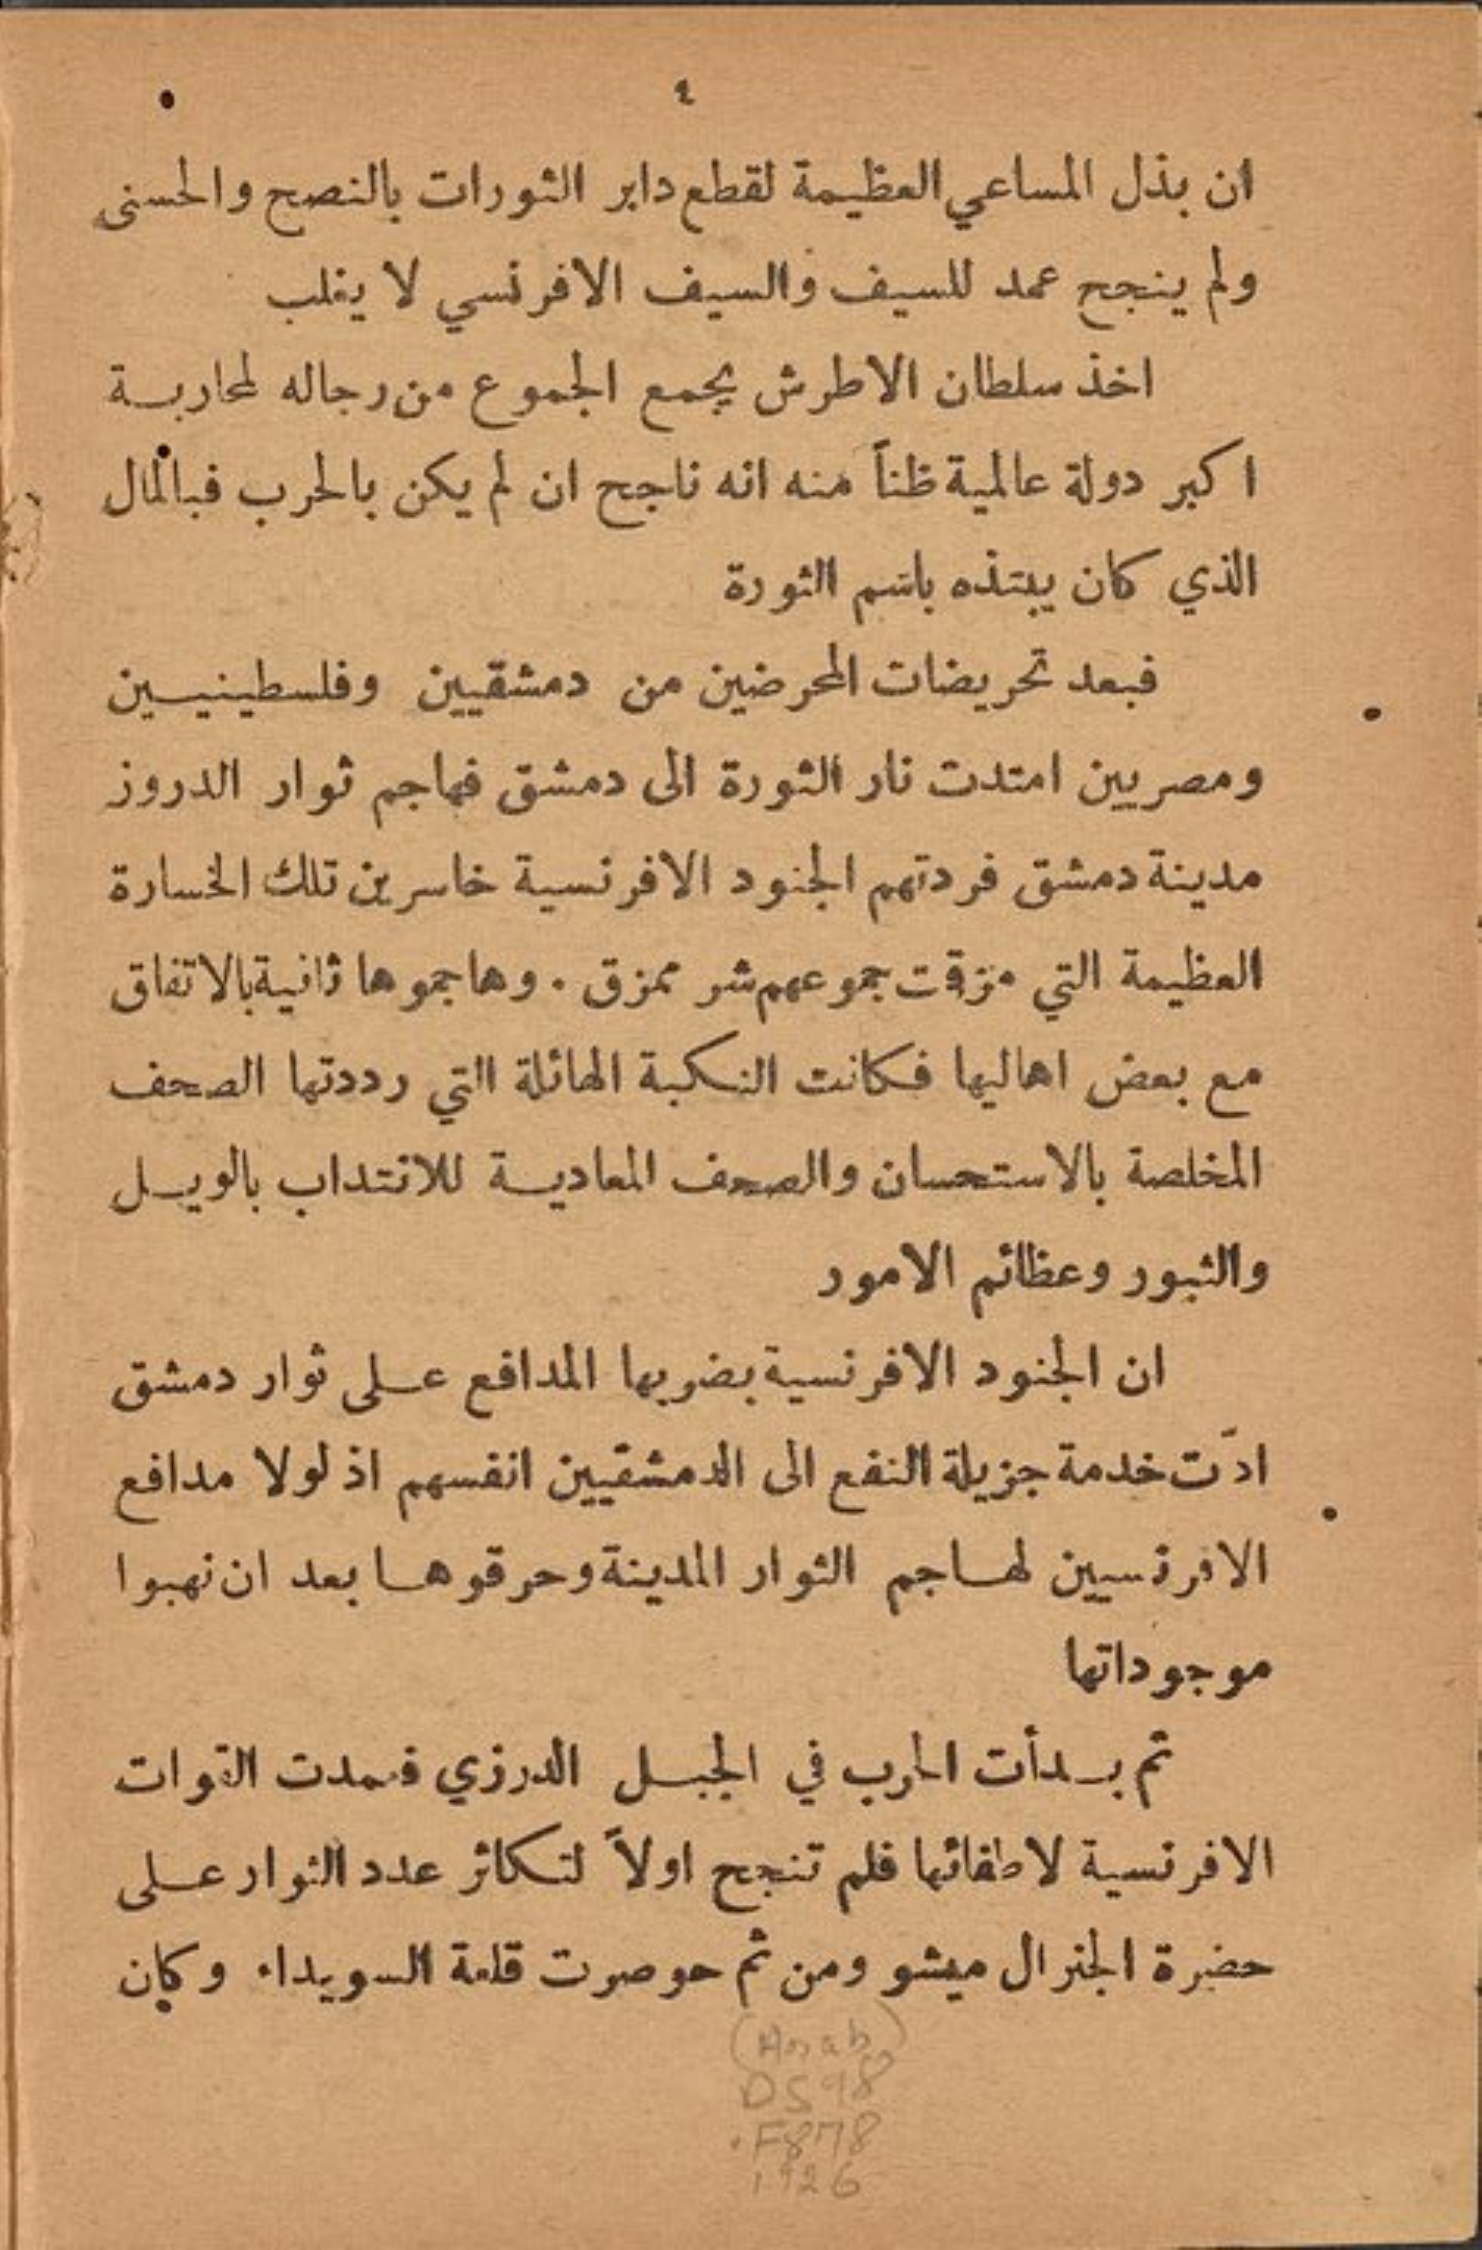 ٤
ان بذل المساعي العظيمة لقطع دابر الثورات بالنصح والحسنى
ولم ينجح عمد للسيف والسيف الافرنسي لا يغلب
اخذ سلطان الاطرش يجمع الجموع من رجاله لمحاربة
اكبر دولة عالمية ظناً منه انه ناجح ان لم يكن بالحرب فبالمال
الذي كان يبتذه باسم الثورة
فبعد تحريضات المحرضين من دمشقيين وفلسطينيين
ومصريين امتدت نار الثورة الى دمشق فهاجم ثوار الدروز
مدينة دمشق فردتهم الجنود الافرنسية خاسرين تلك الخسارة
العظيمة التي مزقت جموعهم شر ممزق . وهاجموها ثانية بالاتفاق
مع بعض اهاليها فكانت النكبة الهائلة التي رددتها الصحف
المخلصة بالاستحسان والصحف المعادية للانتداب بالويل
والثبور وعظائم الامور
ان الجنود الافرنسية بضربها المدافع على ثوار دمشق
ادّت خدمة جزيلة النفع الى الدمشقيين انفسهم اذ لولا مدافع
الافرنسيين لهاجم الثوار المدينة وحرقوها بعد ان نهبوا
موجوداتها
ثم بدأت الحرب في الجبل الدرزي فعمدت القوات
الافرنسية لاطفائها فلم تنجح اولاً لتكاثر عدد الثوار على
حضرة الجنرال ميشو ومن ثم حوصرت قلعة السويداء وكان
(Arab)
DS98
.F878
1926